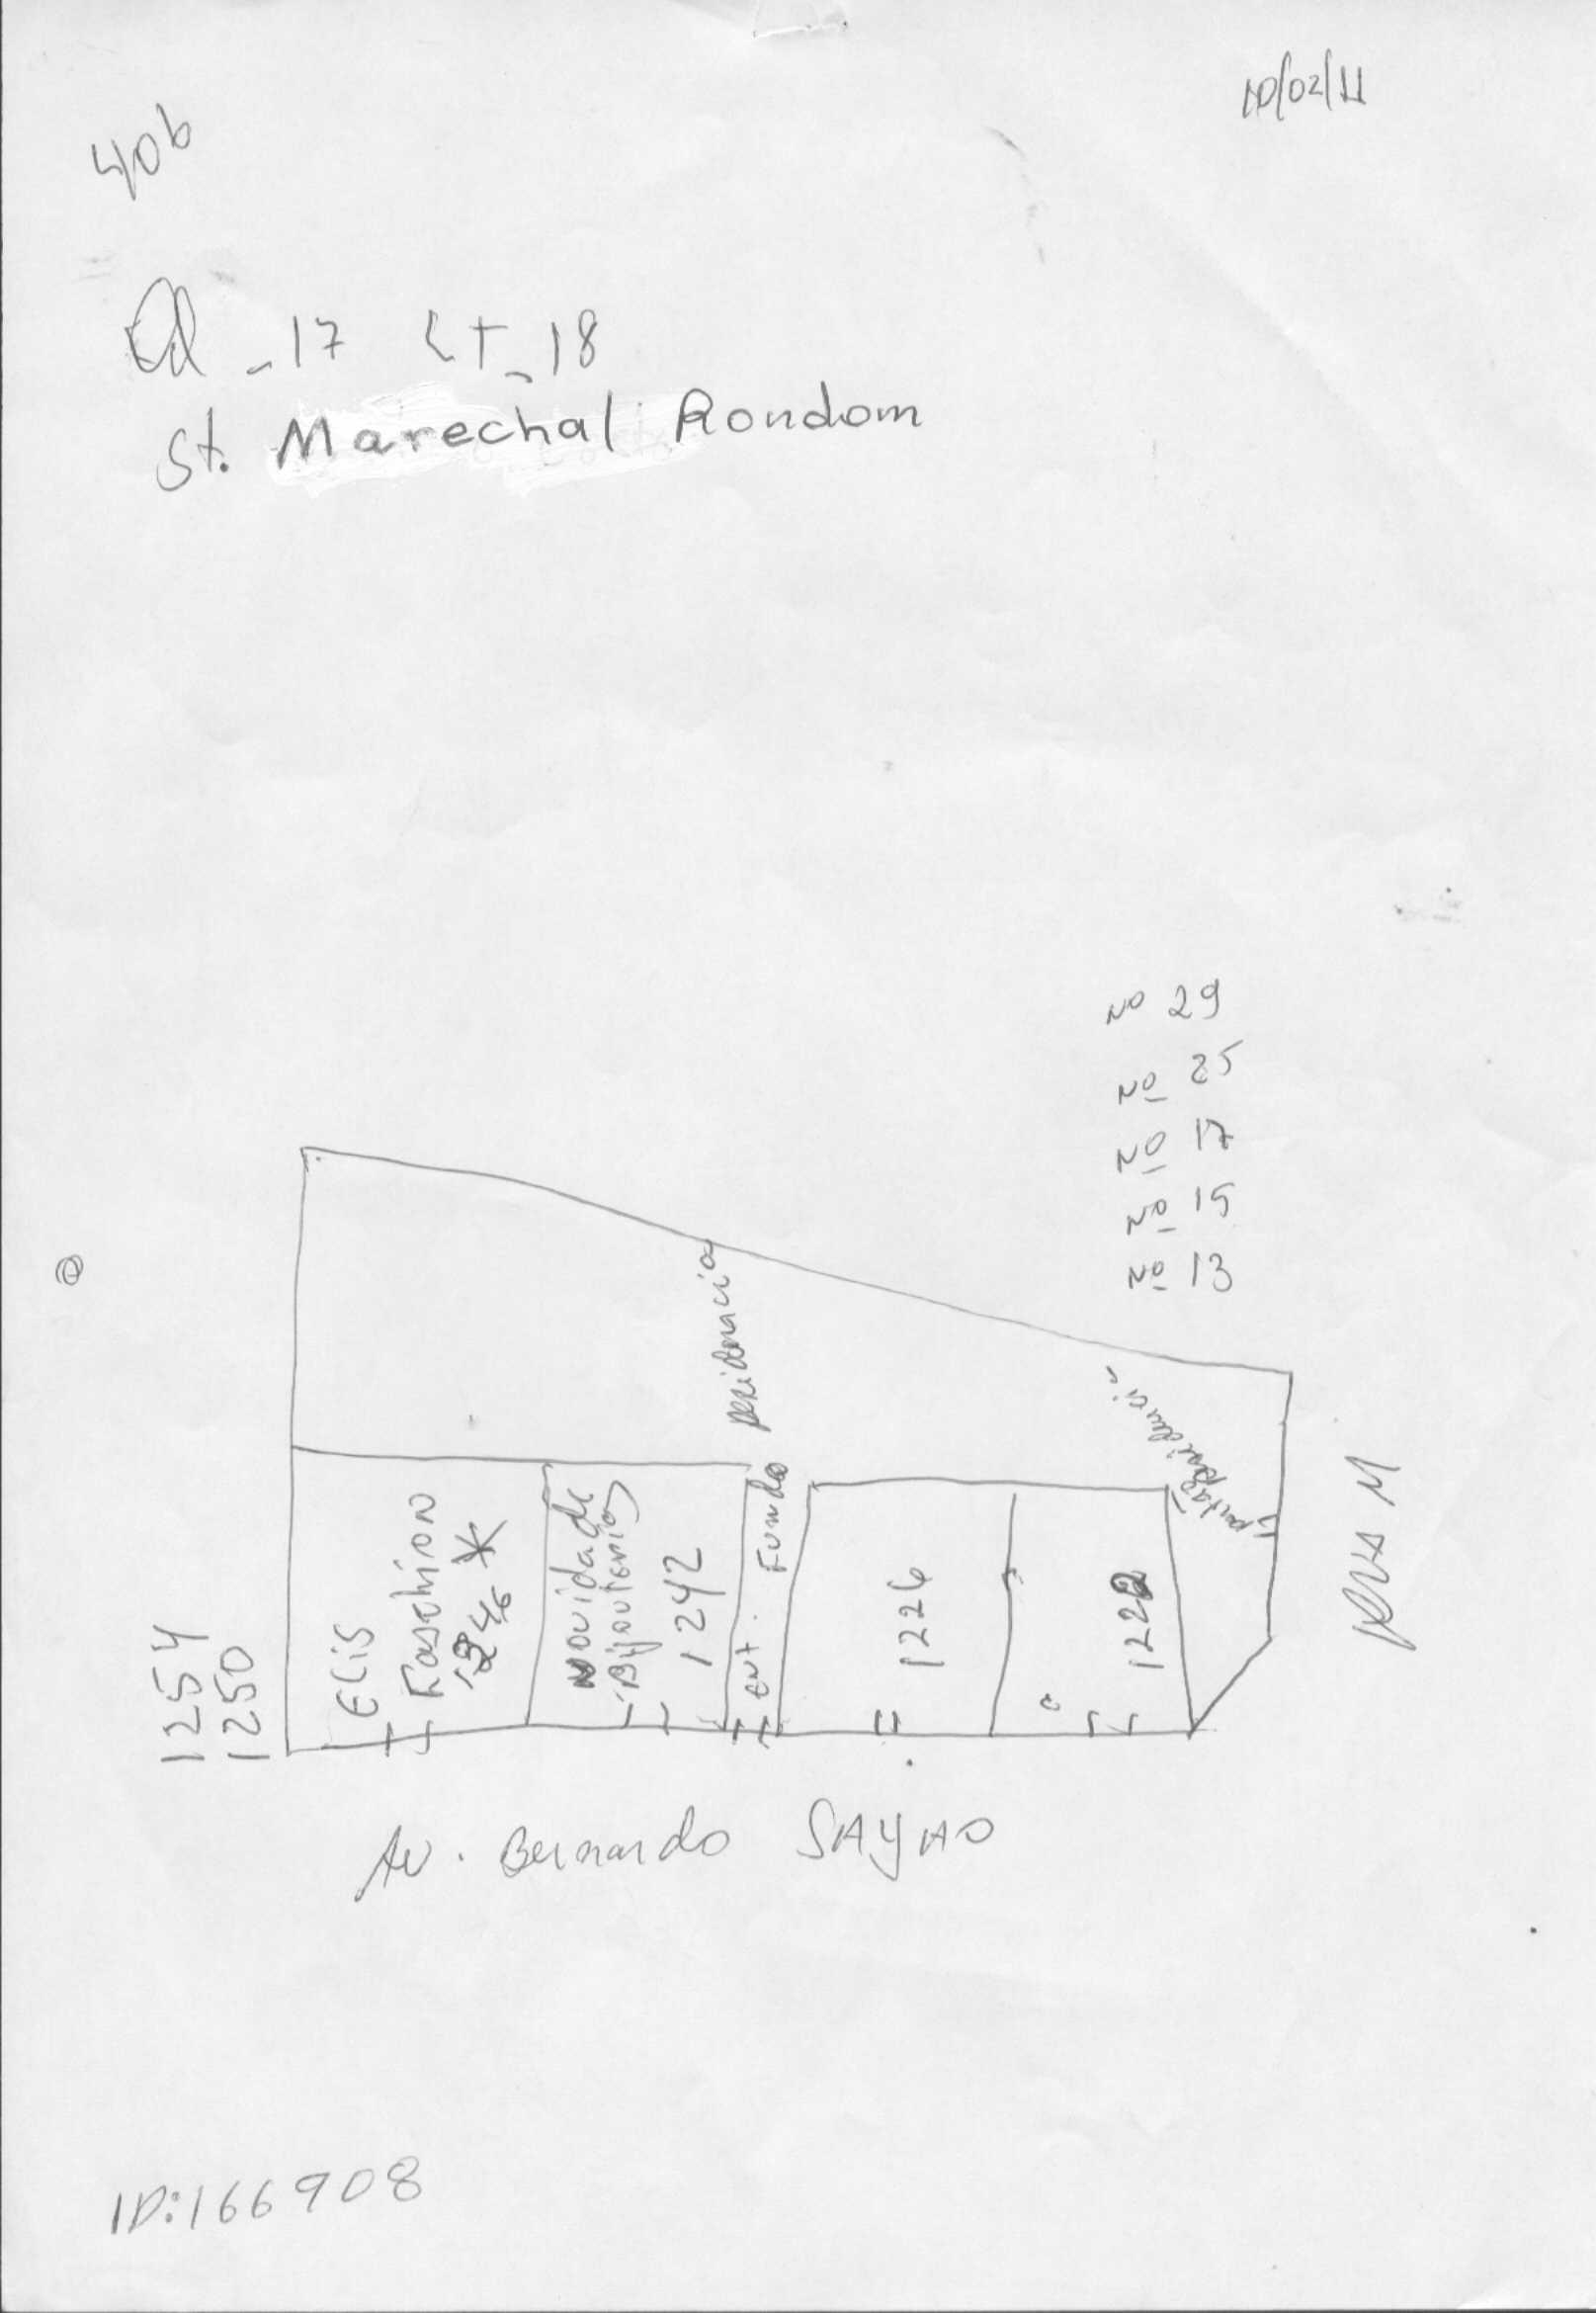 10/02/11
406
Qd - 17 LT - 18
St. Marechal Rondom
Nº 29
Nº 25
Nº 17
Nº 15
Nº 13
1254
1250
Elis
Faschion
1246 *
Novidade
Bijouterias
1242
ent. Fundo
residencia
1226
1222
residencia
Rua M
Av. Bernardo SAYAO
ID:166908